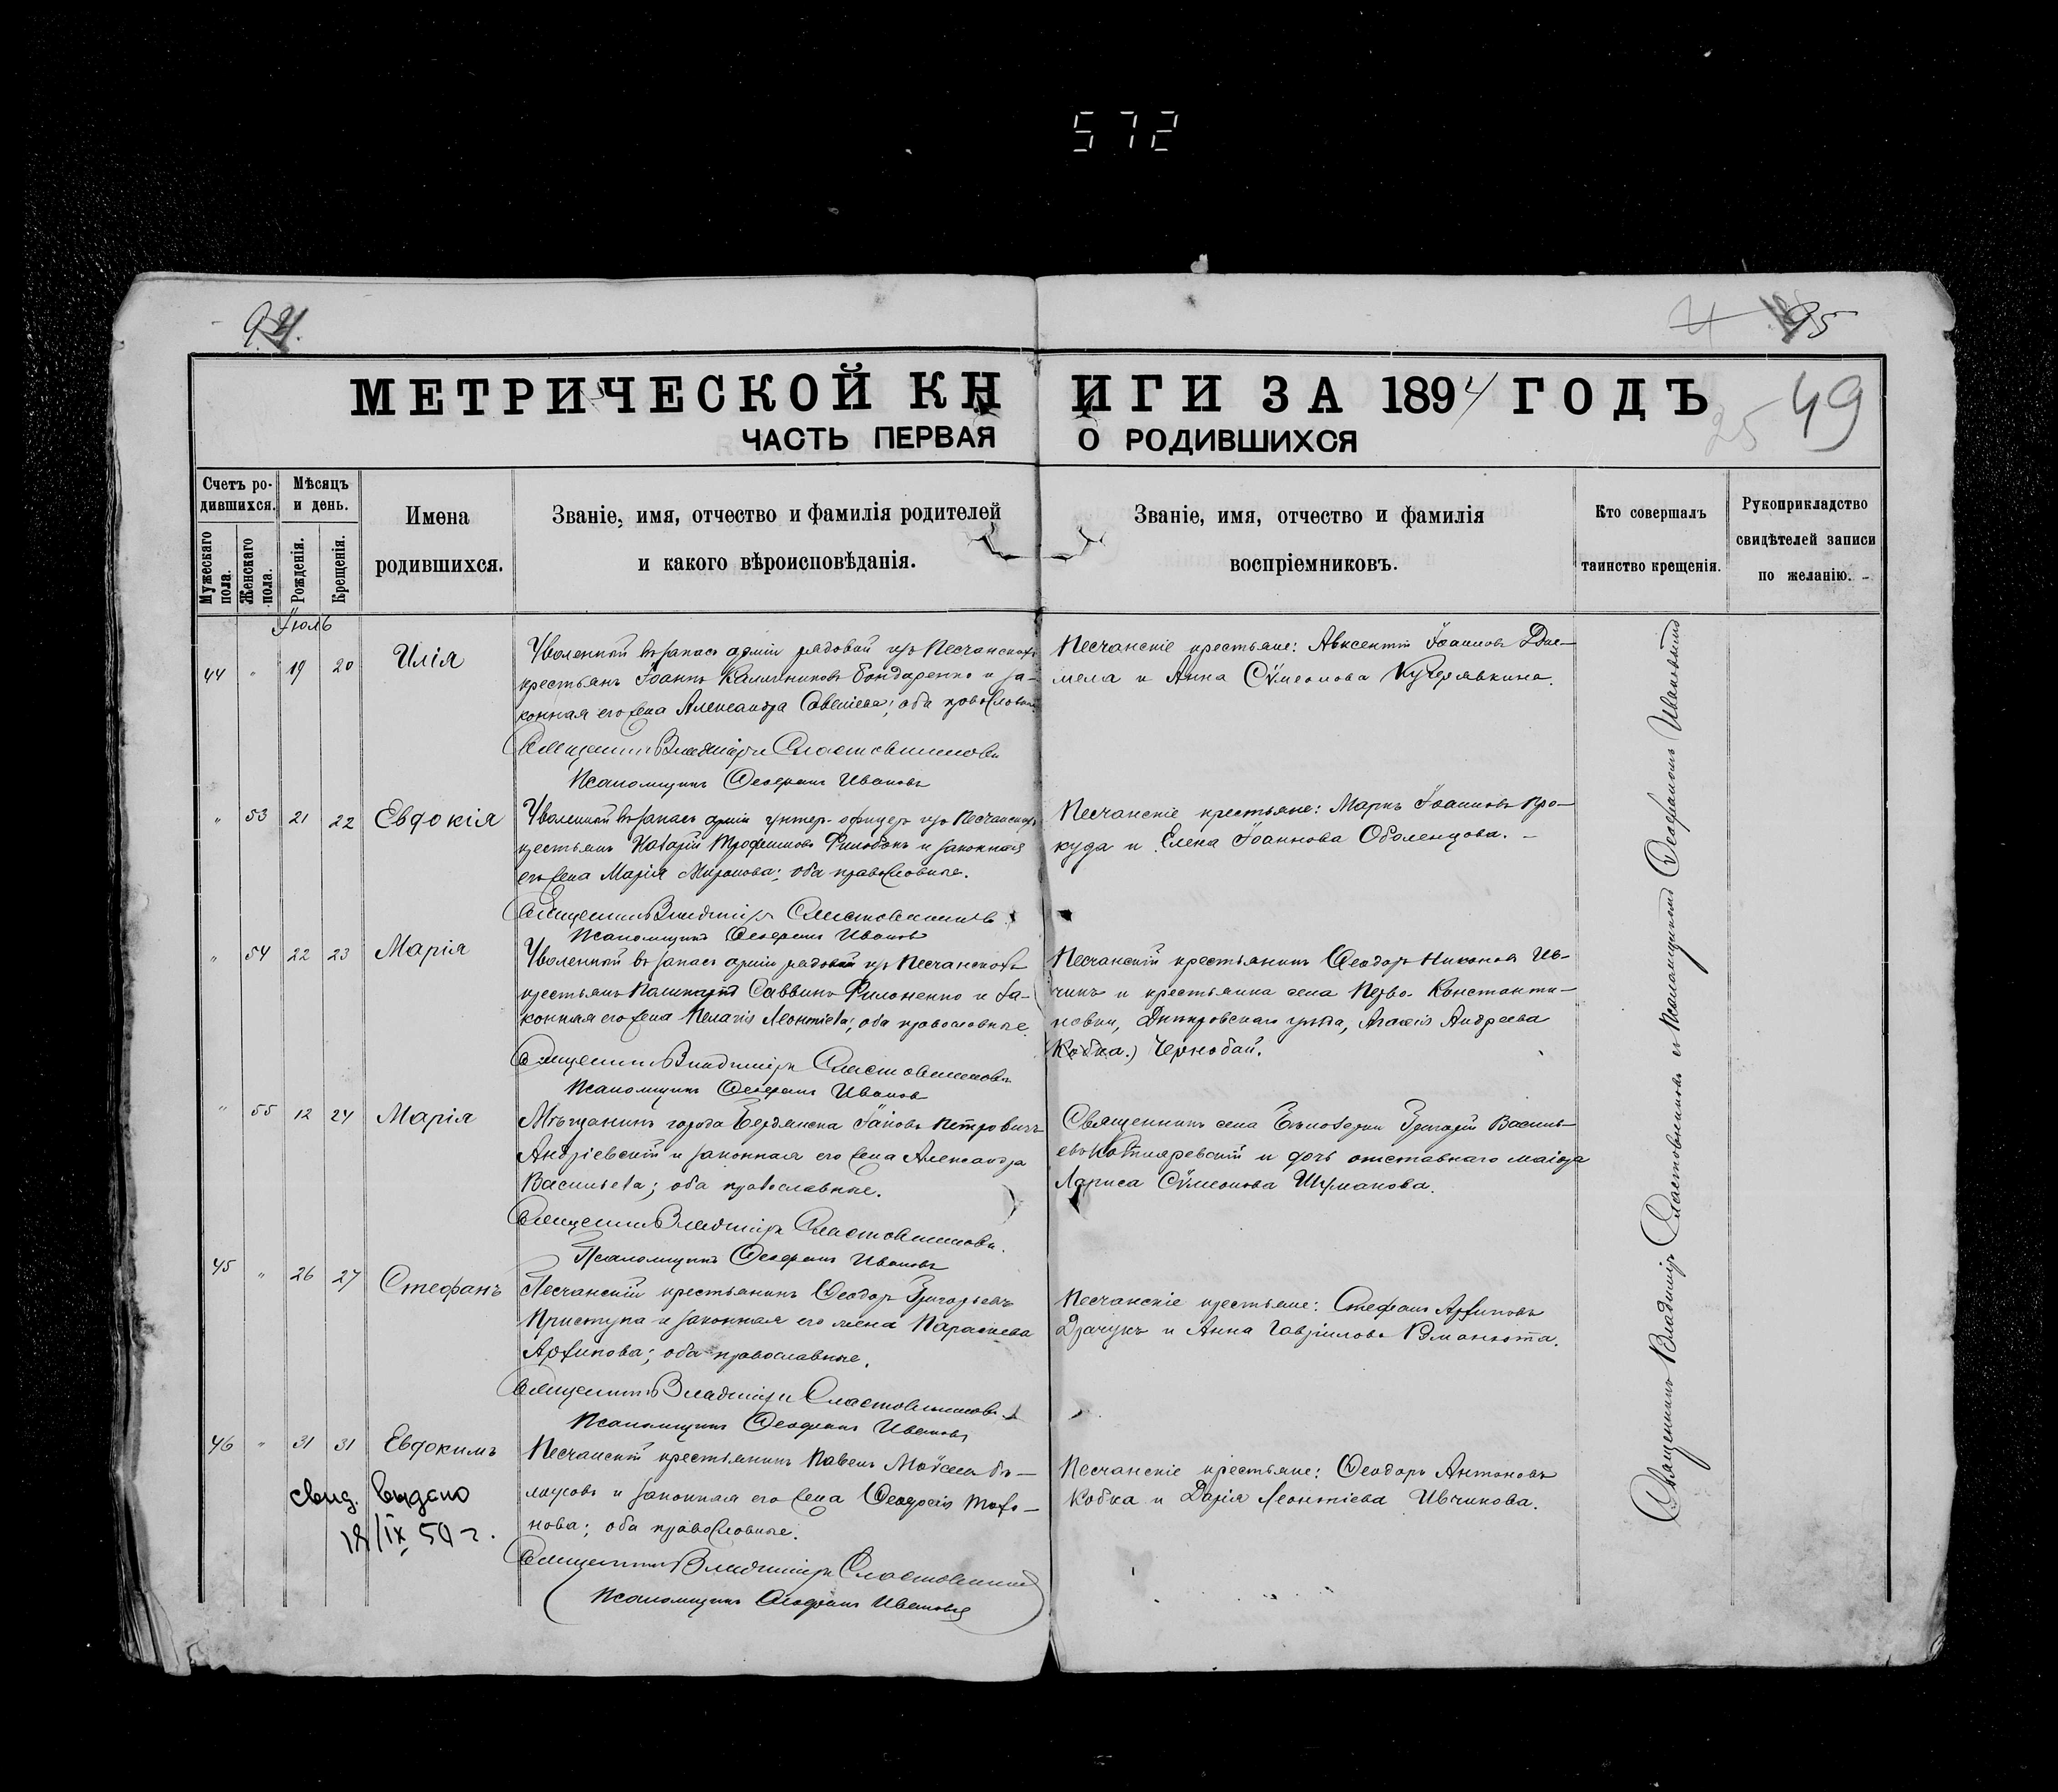 572
94.
95
МЕТРИЧЕСКОЙ КНИГИ ЗА 1894 ГОДЪ
49
25
ЧАСТЬ ПЕРВАЯ О РОДИВШИХСЯ
Счетъ родившихся.
Мужескаго пола.
Женскаго пола.
Мѣсяцъ и день.
Рожденія.
Крещенія.
Имена
родившихся.
Званіе, имя, отчество и фамилія родителей
и какого вѣроисповѣданія.
Званіе, имя, отчество и фамилія
воспріемниковъ.
Кто совершалъ
таинство крещенія.
Рукоприкладство
свидѣтелей записи
по желанію.
Іюль
44 " 19 20 Илія
Уволенный въ запасъ арміи рядовой изъ Песчанскихъ
крестьянъ Іоаннъ Калинниковъ Бондаренко и за-
конная его жена Александра Савеліева; оба православные.
Священникъ Владиміръ Сластовниковъ
Псаломщикъ Ѳеофанъ Ивановъ
Песчанскіе крестьяне: Авксентій Іоанновъ
мела и Анна Сѵмеонова Кучерявкина.
" 53 21 22 Евдокія
Уволенный въ запасъ арміи унтер-офицеръ изъ Песчанскихъ
крестьянъ Назарій Трофимовъ и законная
его жена Марія Миронова; оба православные.
Священникъ Владиміръ Сластовниковъ
Псаломщикъ Ѳеофанъ Ивановъ
Песчанскіе крестьяне: Маркъ Іоанновъ Про-
куда и Елена Іоаннова Оболенцова. -
" 54 22 23 Марія
Уволенный въ запасъ арміи рядовой изъ Песчанскихъ
крестьянъ Поликарпъ Саввинъ Филоненко и за-
конная его жена Пелагія Леонтіева; оба православные.
Священникъ Владиміръ Сластовниковъ
Псаломщикъ Ѳеофанъ Ивановъ
Песчанскій крестьянинъ Ѳеодоръ Никоновъ Ив-
чикъ и крестьянка села Перво-Константи-
новки, Днѣпровскаго уѣзда, Агафія Андреева
(Кобка.) Чернобай.
" 55 12 24 Марія
Мѣщанинъ города Бердянска Іаковъ Петровичъ
Андріевскій и законная его жена Александра
Васильева; оба православные.
Священникъ Владиміръ Сластовниковъ.
Псаломщикъ Ѳеофанъ Ивановъ
Священникъ села Бѣлозерки Григорій Василь-
евъ Котляревскій и дочь отставнаго маіора
Лариса Сѵмеонова Шуманова.
45 " 26 27 Стефанъ
Песчанскій крестьянинъ Ѳеодоръ Григорьевъ
Приступа и законная его жена Параскева
Архипова; оба православные.
Священникъ Владиміръ Сластовниковъ
Псаломщикъ Ѳеофанъ Ивановъ
Песчанскіе крестьяне: Стефанъ Архиповъ
Драчукъ и Анна Гавріилова
46 " 31 31 Евдокимъ
Песчанскій крестьянинъ Павелъ Моѵсеевъ Бѣ-
лоусовъ и законная его жена Ѳеодосія
нова; оба православные.
Священникъ Владиміръ Сластовниковъ
Псаломщикъ Ѳеофанъ Ивановъ
Песчанскіе крестьяне: Ѳеодоръ Антоновъ
Кобка и Дарія Леонтіева Ивчикова.
свид. выдано
18/IX 50 г.
Священникъ Владиміръ Сластовниковъ съ псаломщикомъ Ѳеофаномъ Ивановымъ